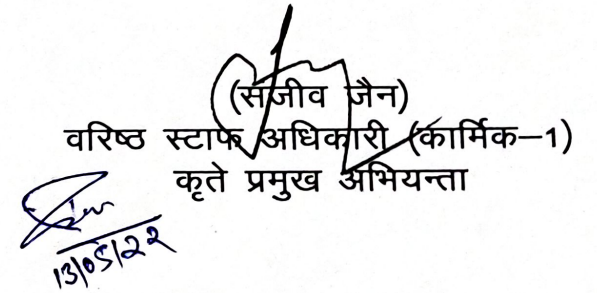 (संजीव जैन)
वरिष्ठ स्टाफ अधिकारी (कार्मिक–1)
कृते प्रमुख अभियन्ता
13/05/22